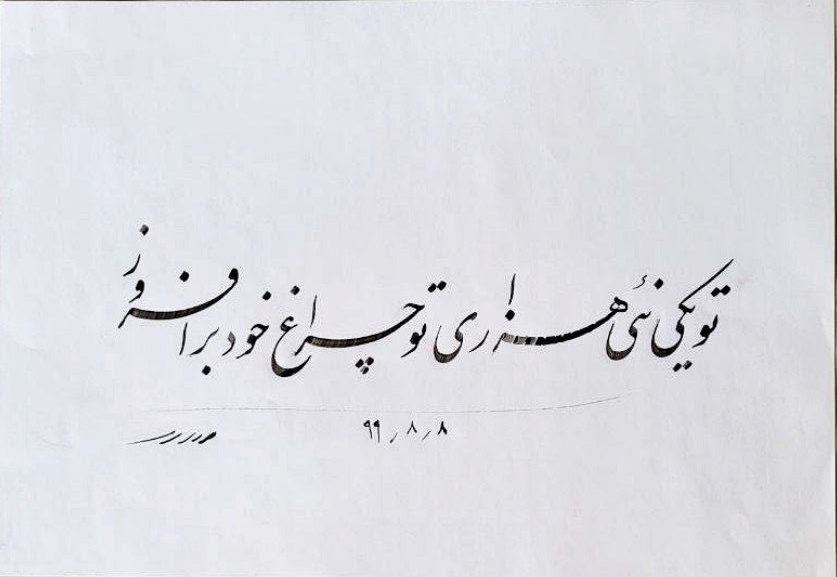 تو یکی نئی هزاری تو چراغ خود برافروز
۹۹٫۸٫۸